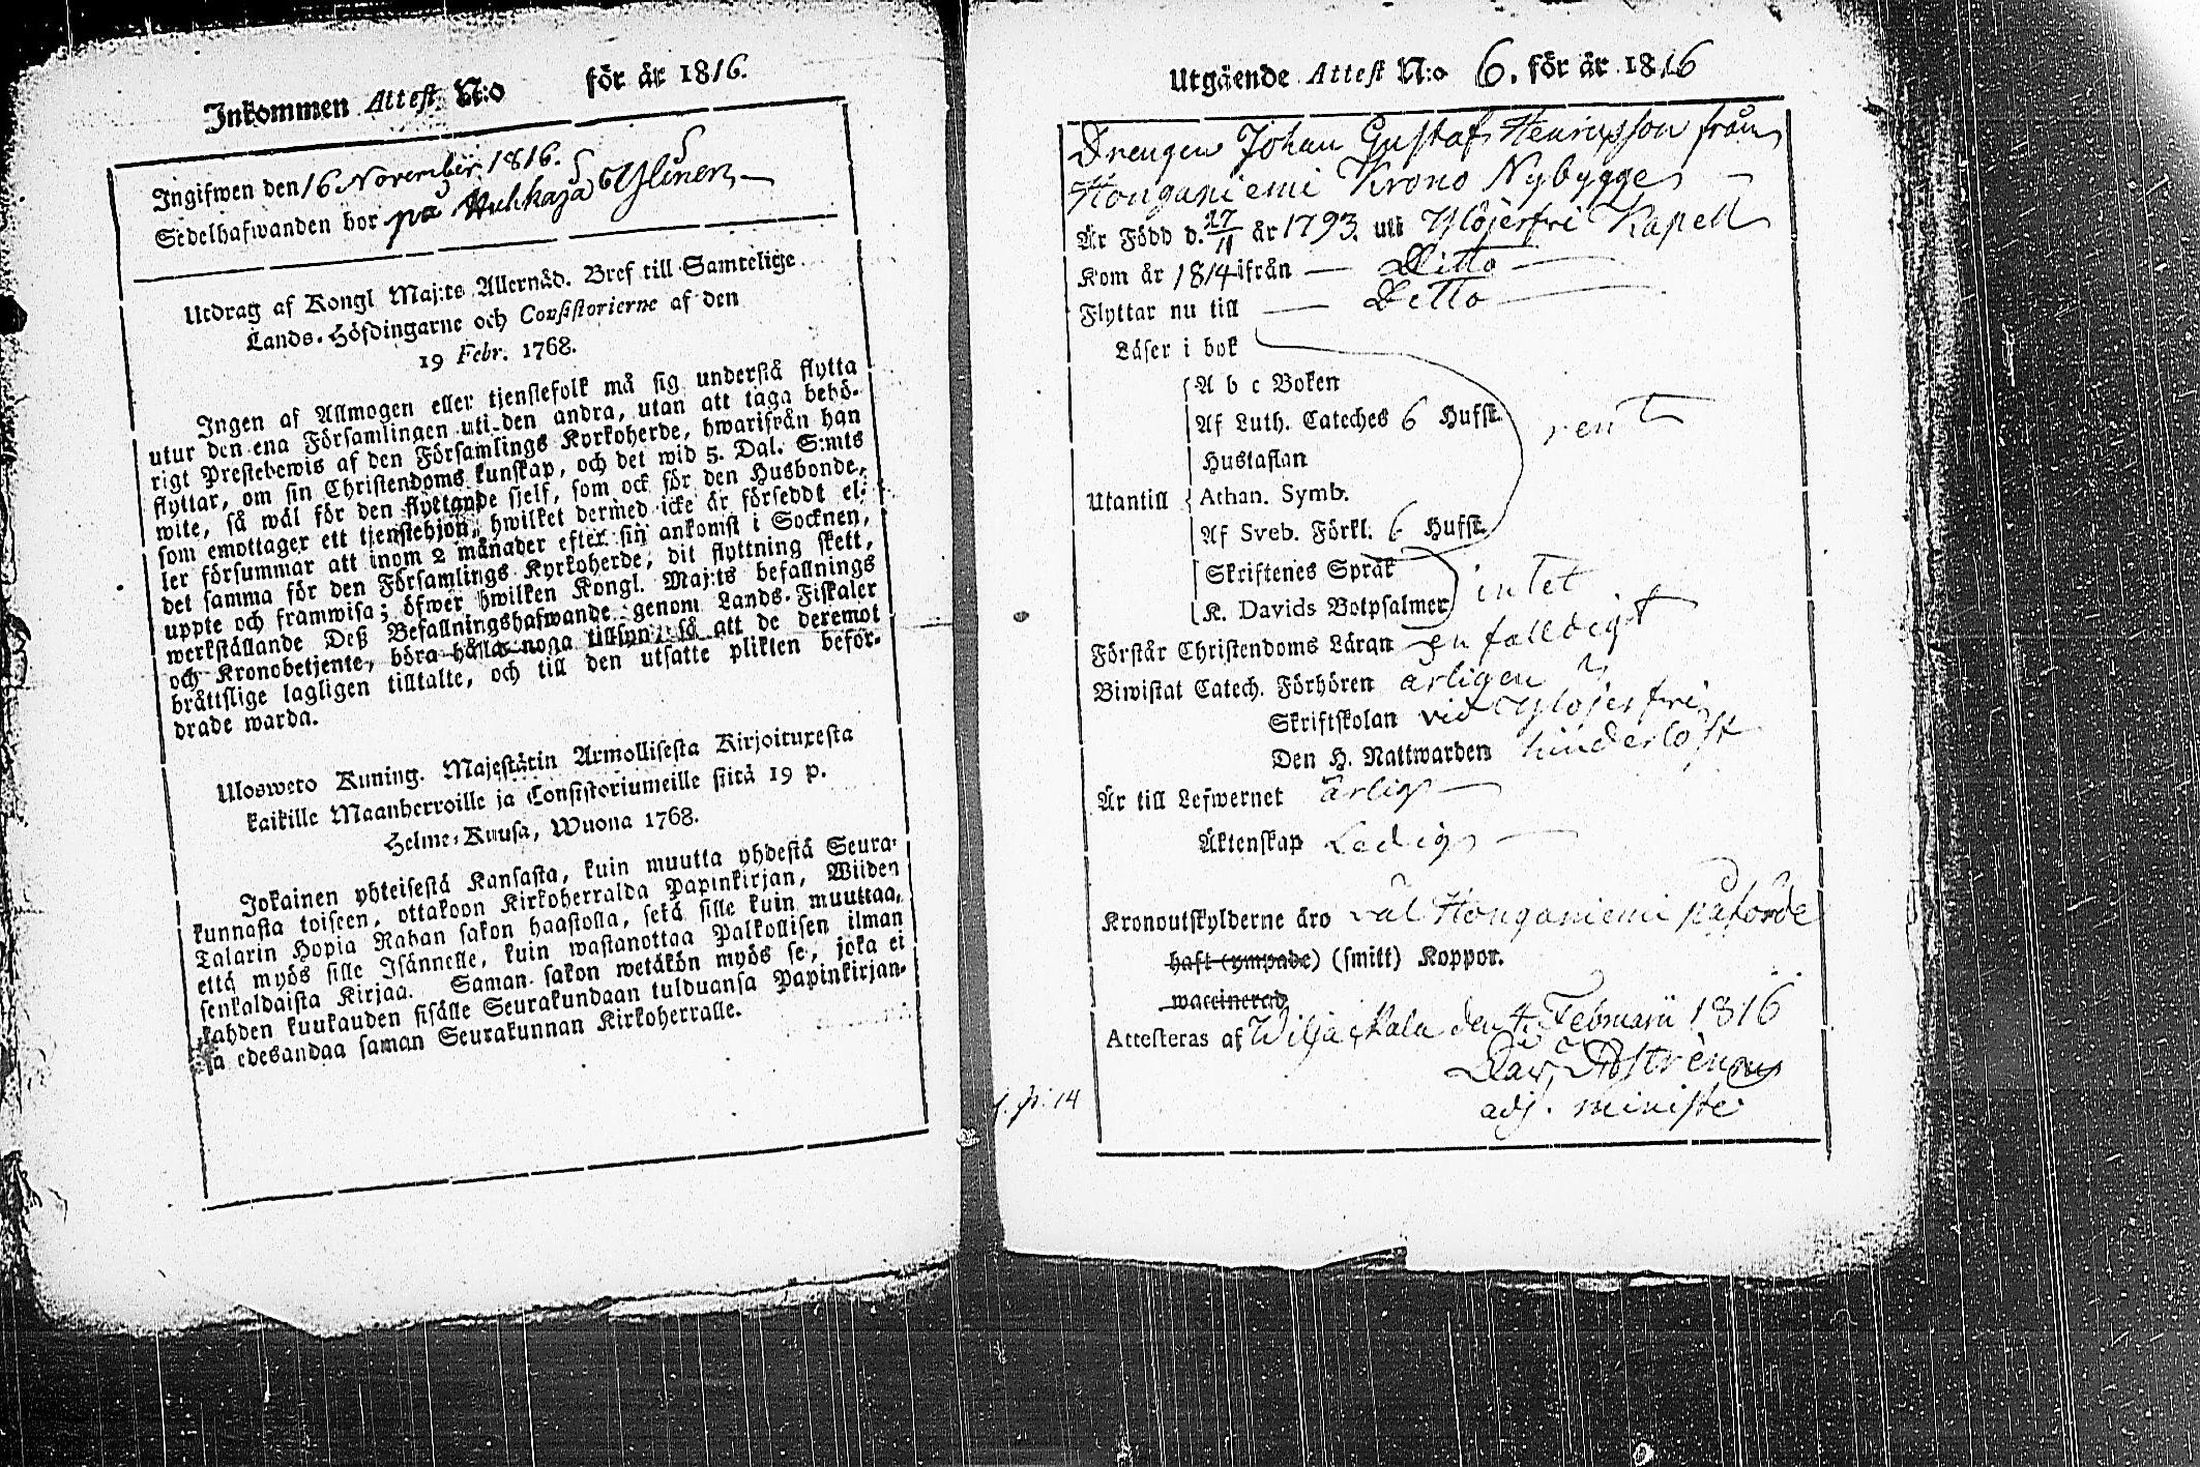 Inkommen Attest. N:o för år 1816.
Ingifwen den 16 November 1816.
Sedelhafwanden bor på Ylinen
Utdrag af Kongl Maj:ts Allernåd. Bref till Samtelige
Lands-Höfdingarne och Consistorierne af den
19 Febr. 1768.
Ingen af Allmogen eller tjenstefolk må sig understå flytta
utur den ena Församlingen uti den andra, utan att taga behö-
rigt Prestebewis af den Församlings Kyrkoherde, hwarifrån han
flyttar, om sin Christendoms kunskap, och det wid 5. Dal. S:mts
wite, så wäl för den flyttande sjelf, som ock för den Husbonde,
som emottager ett tjenstehjon, hwilket dermed icke är försedt el-
ler försummar att inom 2 månader efter sin ankomst i Socknen,
det samma för den Församlings Kyrkoherde, dit flyttning skett,
uppte och framwisa; öfwer hwilken Kongl. Maj:ts befallnings
werkställande Deß Befallningshafwande genom Lands-Fiskaler
och Kronobetjente, böra hålla noga tillsyn, så att de deremot
bråttslige lagligen tilltalte, och till den utsatte plikten befor-
drade warda.
Ulosweto Kuning. Majestätin Armollisesta Kirjoituxesta
kaikille Maanherroille ja Consistoriumeille siitä 19 p.
Helme-Kuusa, Wuona 1768.
Jokainen yhteisestä Kansasta, kuin muutta yhdestä Seura-
kunnasta toiseen, ottakoon Kirkoherralda Papinkirjan, Wiiden
Talarin Hopia Rahan sakon haastolla, sekä sille kuin muuttaa,
että myös sille Isännelle, kuin wastanottaa Palkollisen ilman
senkaldaista Kirjaa. Saman sakon wetäkön myös se, joka ei
kahden kuukauden sisälle Seurakundaan tulduansa Papinkirjan-
sa edesandaa saman Seurakunnan Kirkoherralle.
Utgående Attest N:o 6. för år 1816
Drengen Johan Gustaf Henricsson från
Honganiemi Krono Nybygge
Är Född d. 27/11 år 1793. uti Ylöjerfvi Kapell
Kom år 1814 ifrån — Ditto —
Flyttar nu till — Ditto —
Läser i bok
A b c Boken
Af Luth. Cateches 6 Hufst. rent
Hustaflan
Utantill Athan. Symb.
Af Sveb. Förkl. 6 Hufst.
Skriftenes Språk
K. Davids Botpsalmer intet
Förstår Christendoms Läran enfalldigt
Biwistat Catech. Förhören årligen
Skriftskolan vid Ylöjerfvi
Den H. Nattwarden hinderlöst
Är till Lefwernet ärlig —
Äktenskap Ledig —
Kronoutskylderne äro vid Honganiemi påförde
haft (ympade) (smitt) Koppor.
waccinerad
Attesteras af Wiljackala den 4. Februarii 1816
adj. minist